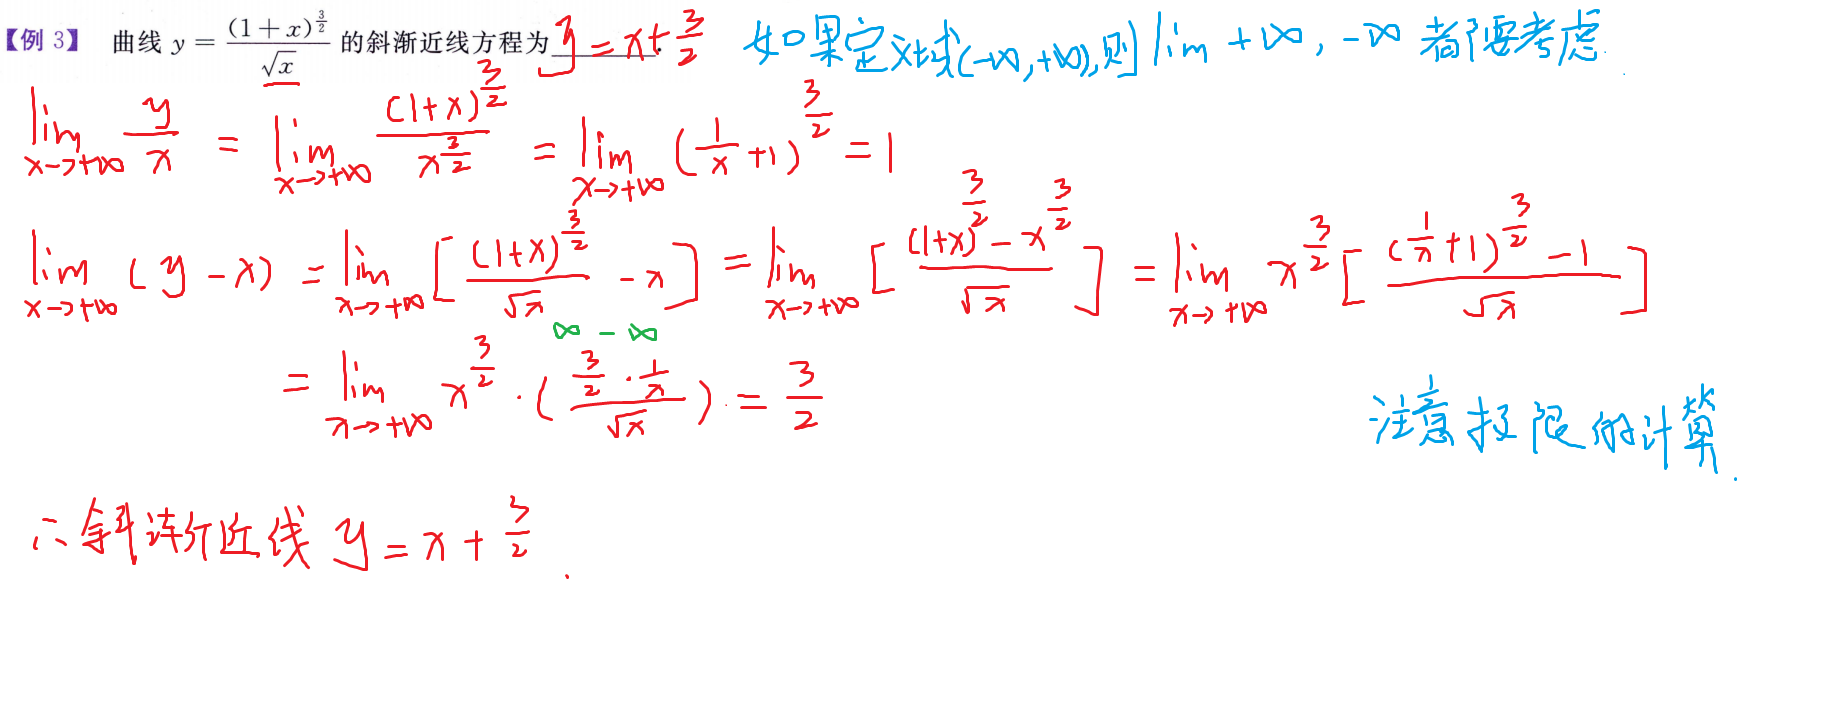 【例 3】 曲线 y = (1+x)^{3/2}/√x 的斜渐近线方程为 y = x + 3/2. 如果定义域(-∞,+∞),则 lim +∞, -∞ 都要考虑.
lim_{x→+∞} y/x = lim_{x→+∞} (1+x)^{3/2}/x^{3/2} = lim_{x→+∞} (1/x +1)^{3/2} = 1
lim_{x→+∞} (y - x) = lim_{x→+∞} [(1+x)^{3/2}/√x - x] = lim_{x→+∞} [((1+x)^{3/2} - x^{3/2})/√x] = lim_{x→+∞} x^{3/2} [((1/x +1)^{3/2} - 1)/√x]
∞ - ∞
= lim_{x→+∞} x^{3/2} · ((3/2 · 1/x)/√x) = 3/2
注意极限的计算.
∴ 斜渐近线 y = x + 3/2.